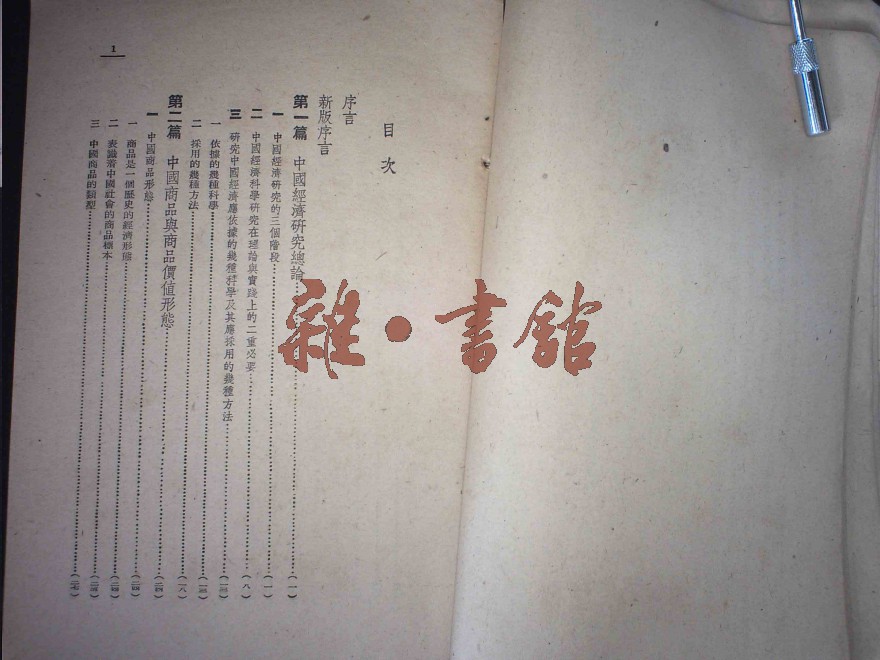 目次
序言
新版序言
第一篇 中國經濟研究總論……(一)
一 中國經濟研究的三個階段……(一)
二 中國經濟科學研究在理論與實踐上的二重必要……(八)
三 研究中國經濟應依據的幾種科學及其應採用的幾種方法……(一三)
一 依據的幾種科學……(一三)
二 採用的幾種方法……(一八)
第二篇 中國商品與商品價值形態……(二四)
一 中國商品形態……(二四)
一 商品是一個歷史的經濟形態……(二四)
二 表識着中國社會的商品標本……
三 中國商品的類型……
1
雜•書館